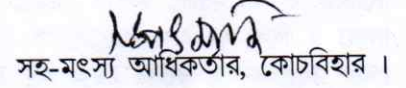 সহ-মৎস্য আধিকর্তার, কোচবিহার ।